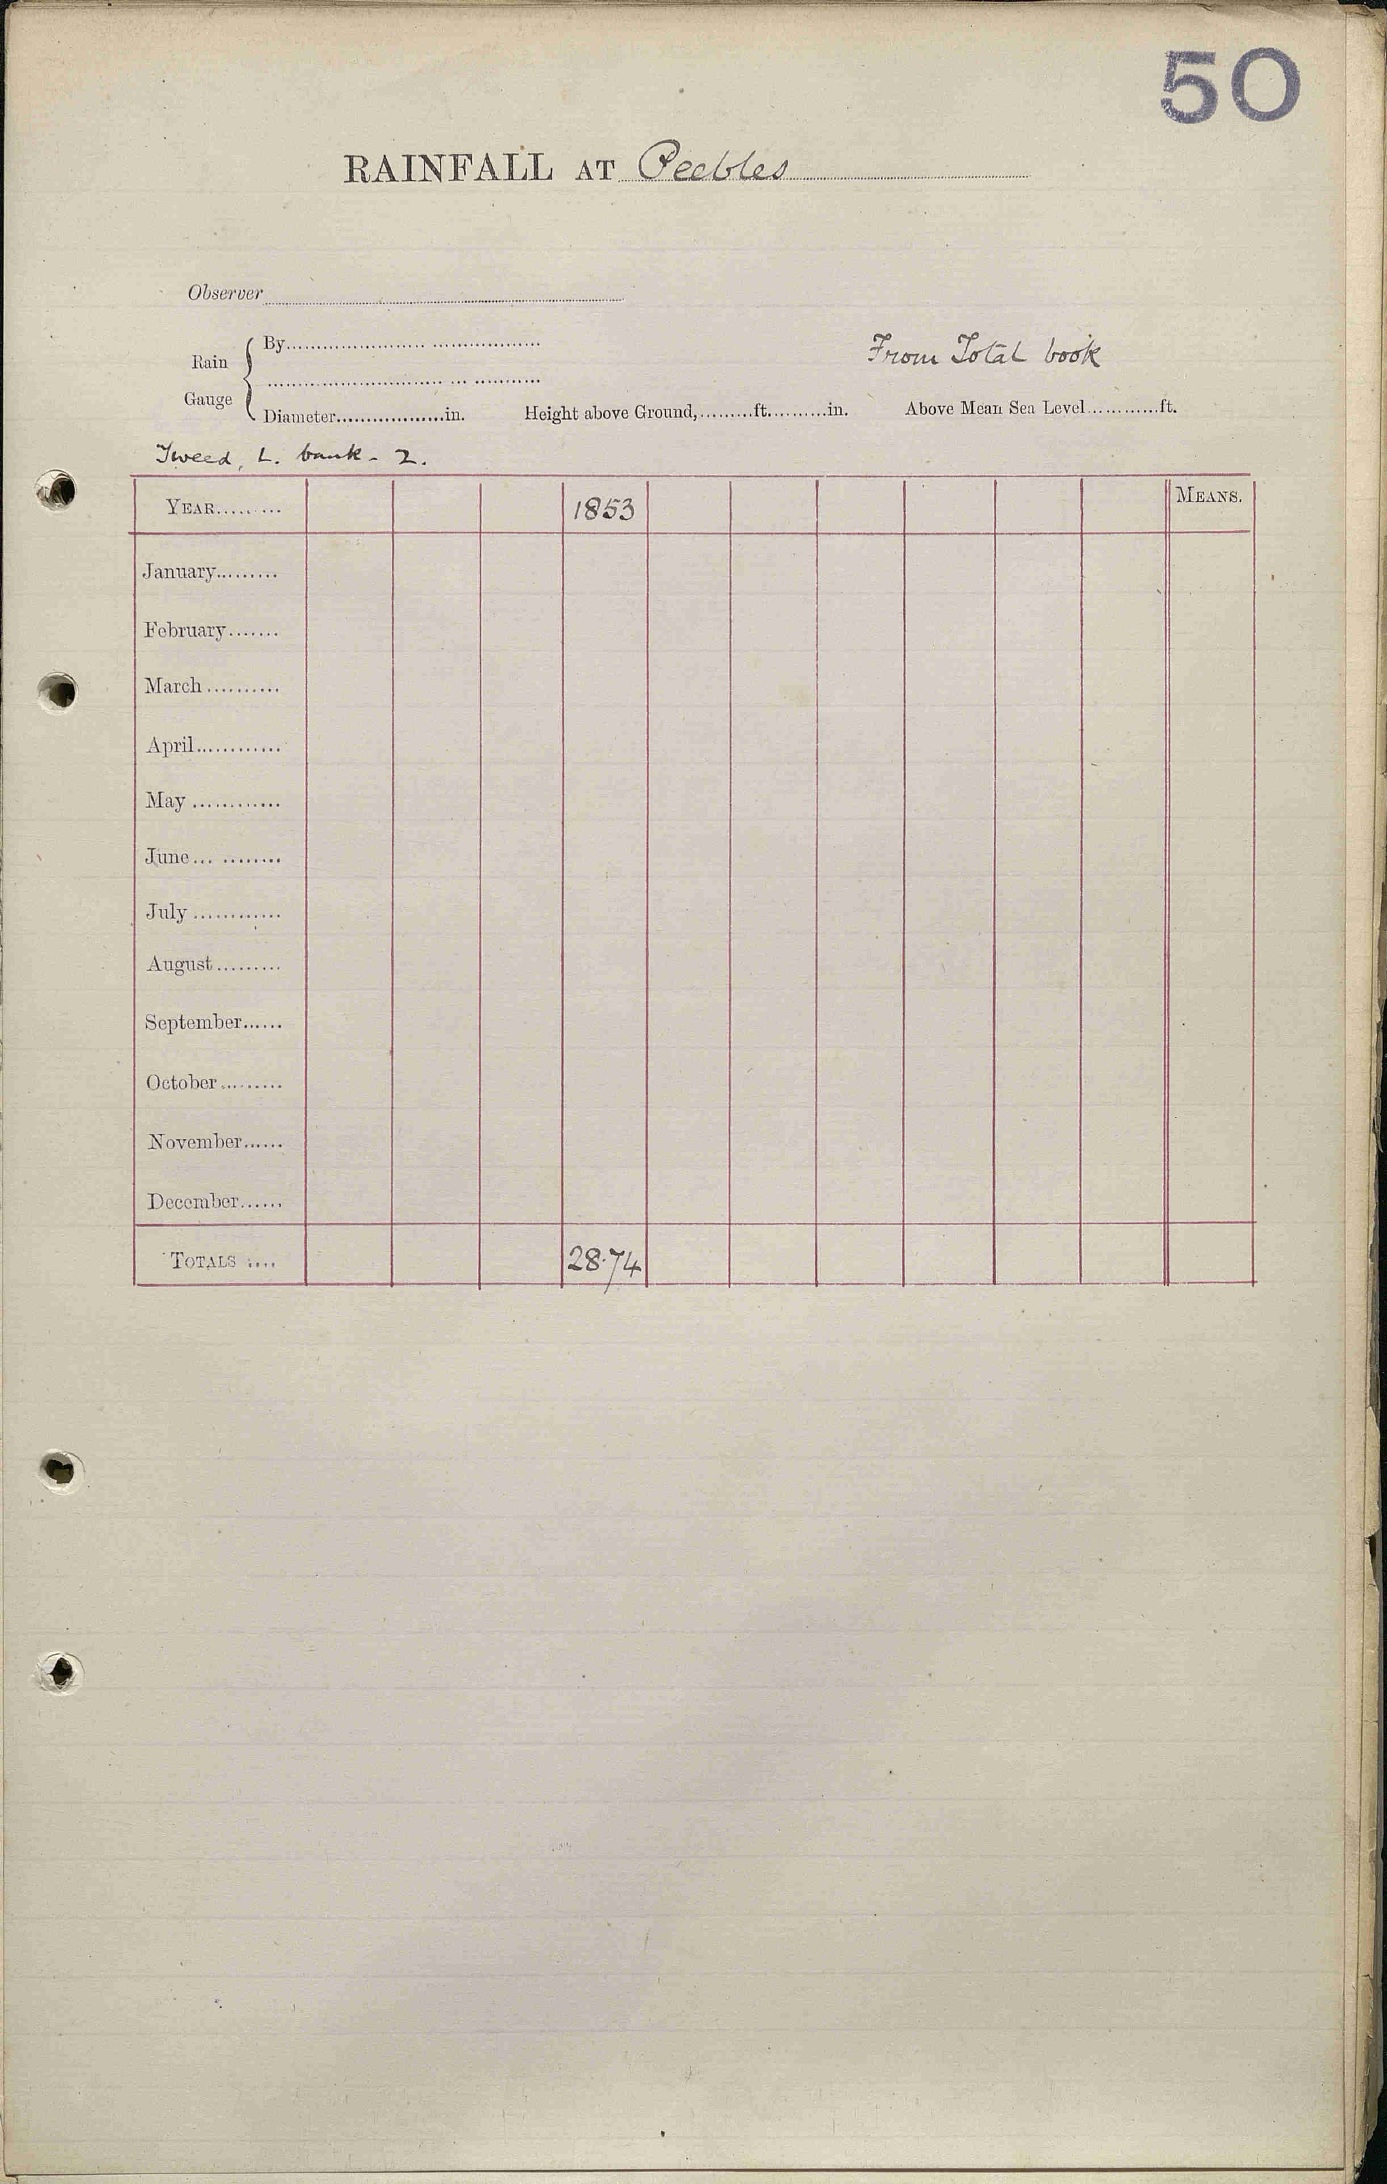 50
RAINFALL AT Peebles
Observer
Rain Gauge
By
Diameter in. Height above Ground, ft. in. Above Mean Sea Level ft.
From Total book
Tweed, L. bank - 2.
YEAR 1853 MEANS.
January
February
March
April
May
June
July
August
September
October
November
December
TOTALS 28.74